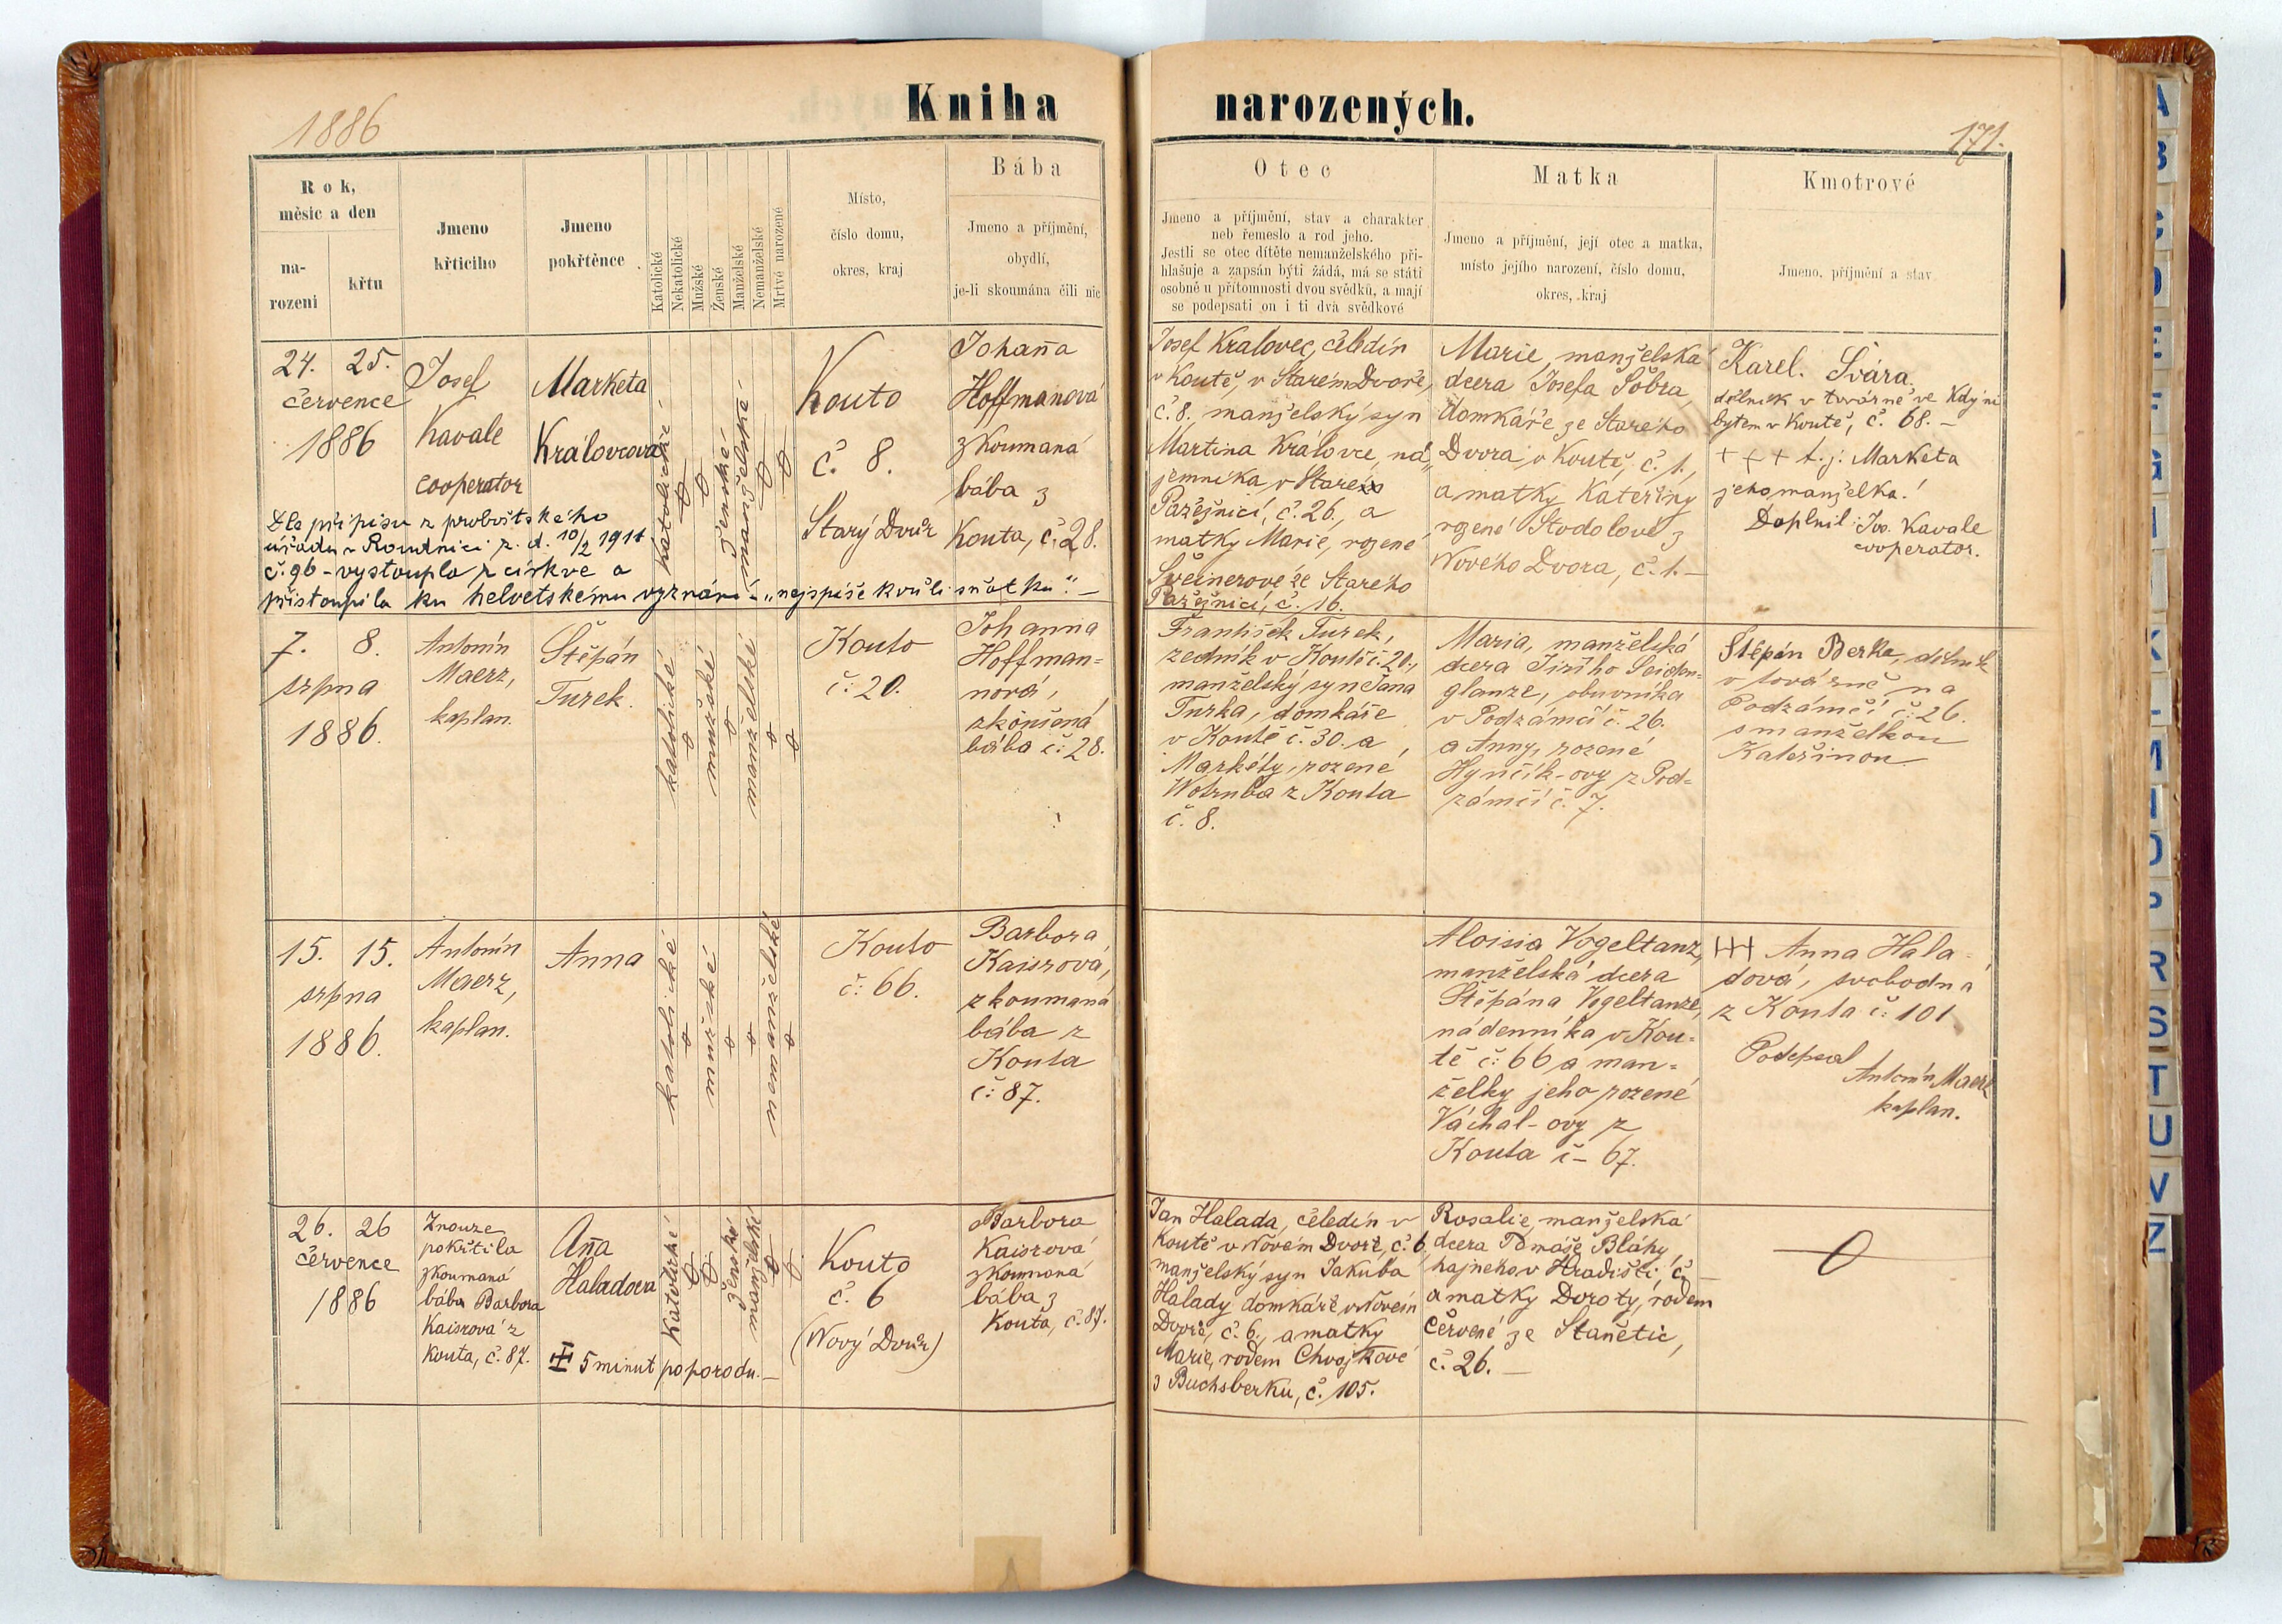 1886
Kniha narozených.
171.
Rok, měsíc a den
narození
křtu
Jmeno křticího
Jmeno pokřtěnce
Katolické
Nekatolické
Mužské
Ženské
Manželské
Nemanželské
Mrtvé narozené
Místo,
číslo domu,
okres, kraj
Bába
Jmeno a příjmění,
obydlí,
je-li skoumána čili nic
Otec
Jmeno a příjmění, stav a charakter
neb řemeslo a rod jeho.
Jestli se otec dítěte nemanželského při-
hlašuje a zapsán býti žádá, má se státi
osobně u přítomnosti dvou svědků, a mají
se podepsati on i ti dva svědkové
Matka
Jmeno a příjmění, její otec a matka,
místo jejího narození, číslo domu,
okres, kraj
Kmotrové
Jmeno, příjmění a stav
24. 25.
července
1886
Josef
Kavale
cooperator
Marketa
Královcova
katolické
ženské
manželské
Kouto
č. 8.
Starý Dvůr
Johaňa
Hoffmanová
zkoumaná
bába z
Kouta, č. 28.
Josef Kralovec, čeledín
v Koutě, v Starém Dvoře,
č. 8. manželský syn
Martina Královce, ná-
jemníka v Staré
Pažežnici, č. 26., a
matky Marie, rozené
ze Starého
Pažežnici, č. 16.
Marie, manželská
dcera Josefa Šobra,
domkáře ze Starého
Dvora, v Koutě, č. 1.,
a matky Kateřiny
rozené Stodolové z
Nového Dvora, č. 1. —
Karel. Švára
dělník v tvárně ve Kdyni
bytem v Koutě, č. 68. —
+ + + t. j. Markéta
jeho manželka.
Doplnil: Jos. Kavale
cooperator.
Dle přípisu z proboštského
úřadu v Roudnici z. d. 10/2 1911
č. 96 - vystoupla z církve a
přistoupila ku helvetskému vyznání - „nejspíše kvůli sňatku". —
7. 8.
srpna
1886.
Antonín
Maerz,
kaplan.
Štěpán
Turek.
katolické
mužské
manželské
Kouto
č: 20.
Johanna
Hoffman=
nová,
zkoušená
bába č: 28.
František Turek,
zedník v Koutě č. 20.,
manželský syn Jana
Turka, domkáře
v Koutě č. 30. a
Markéty, rozené
Wotruba z Kouta
č. 8.
Maria, manželská
dcera Jiřího Seiden=
glanze, obuvníka
v Podzámčí č. 26.
a Anny, rozené
Hynčík-ovy z Pod=
zámčí č. 7.
Štěpán Berka, dělník
v továrně na
Podzámčí č: 26.
s manželkou
Kateřinou
15. 15.
srpna
1886.
Antonín
Maerz,
kaplan.
Anna
katolické
mužské
nemanželské
Kouto
č: 66.
Barbora
Kaisrová,
zkoumaná
bába z
Kouta
č: 87.
Aloisia Vogeltanz,
manželská dcera
Štěpána Vogeltanze,
nádenníka v Kou=
tě č: 66 a man=
želky jeho rozené
Váchal-ovy z
Kouta č - 67.
+++ Anna Hala=
dová, svobodná
z Kouta č: 101
Podepsal
Antonín Maerz
kaplan.
26. 26
července
1886
Znouze
pokřtila
zkoumaná
bába Barbora
Kaisrová z
Kouta, č. 87.
Aňa
Haladova
5 minut po porodu. —
Katolické
ženské
manželské
Kouto
č. 6
(Nový Dvůr)
Barbora
Kaisrová
zkoumaná
bába z
Kouta, č. 87.
Jan Halada, čeledín v
Koutě v Novém Dvoře, č. 6,
manželský syn Jakuba
Halady, domkáře v Novém
Dvoře, č. 6., a matky
Marie, rodem Chvojkové
z Buchsberku, č. 105.
Rosalie, manželská
dcera Tomáše Bláhy,
hajného v Hradišti, č. —
a matky Doroty, rodem
Červené ze Staňětic,
č. 26. —
A
B
C
D
E
F
G
I
K
L
M
R
S
T
U
V
Z